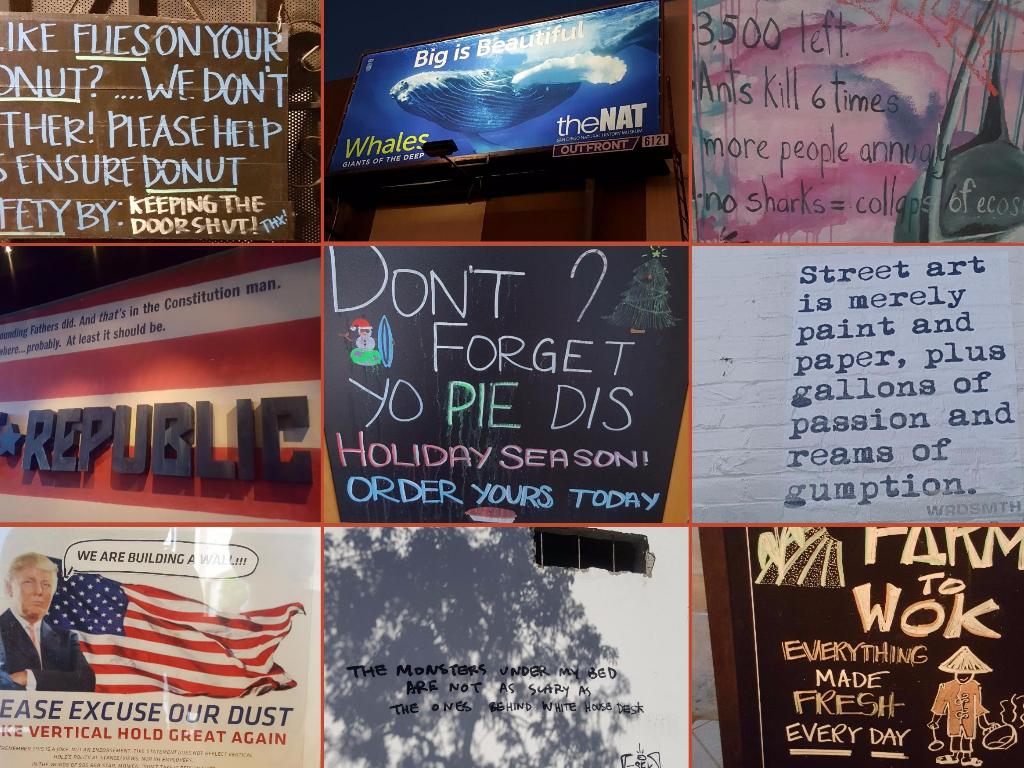 LIKE FLIES ON YOUR
DONUT? ....WE DON'T
THER! PLEASE HELP
ENSURE DONUT
FETY BY: KEEPING THE
DOOR SHUT! THX!
Big is Beautiful
Whales
GIANTS OF THE DEEP
theNAT
SAN DIEGO NATURAL HISTORY MUSEUM
OUTFRONT 6121
3,500 left.
Ants Kill 6 times
more people annualy
no sharks = collaps of ecos
ounding Fathers did. And that's in the Constitution man.
where...probably. At least it should be.
REPUBLIC
DON'T ?
FORGET
YO PIE DIS
HOLIDAY SEASON!
ORDER YOURS TODAY
Street art
is merely
paint and
paper, plus
gallons of
passion and
reams of
gumption.
WRDSMTH
WE ARE BUILDING A WALL!!!
EASE EXCUSE OUR DUST
KE VERTICAL HOLD GREAT AGAIN
REMEMBER THIS IS A JOKE, NOT AN ENDORSEMENT. THIS STATEMENT DOES NOT REFLECT VERTICAL
HOLD'S POLITICAL STANCE/VIEWS, NOR ITS EMPLOYEES.
THE MONSTERS UNDER MY BED
ARE NOT AS SCARY AS
THE ONES BEHIND WHITE HOUSE DESK
FARM
TO
WOK
EVERYTHING
MADE
FRESH
EVERY DAY